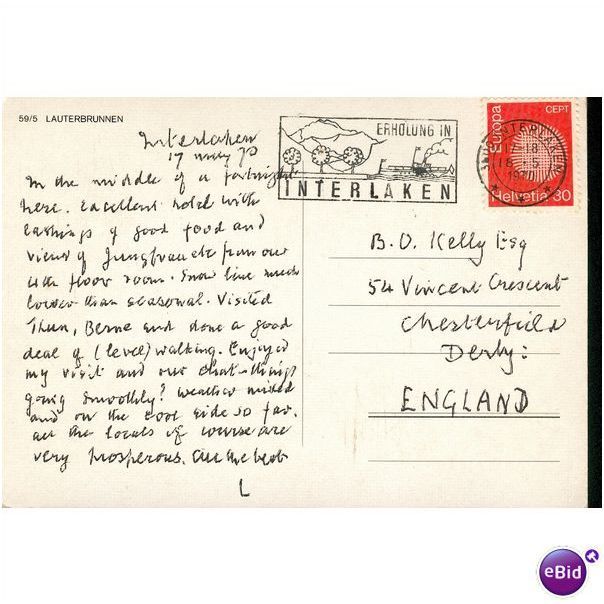 59/5 LAUTERBRUNNEN
Interlaken
17 May 70
In the middle of a fortnight
here. Excellent hotel with
lashings of good food and
views of Jungfrau etc from our
4th floor room. Snow line much
lower than seasonal. Visited
Thun, Berne and done a good
deal of (level) walking. Enjoyed
my visit and our chat - things
going smoothly? Weather mixed
and on the cool side so far.
All the locals of course are
very prosperous. All the best
L
ERHOLUNG IN
INTERLAKEN
Europa
CEPT
INTERLAKEN
1970
Helvetia 30
B. O. Kelly Esq
54 Vincent Crescent
Chesterfield
Derby:
ENGLAND
eBid